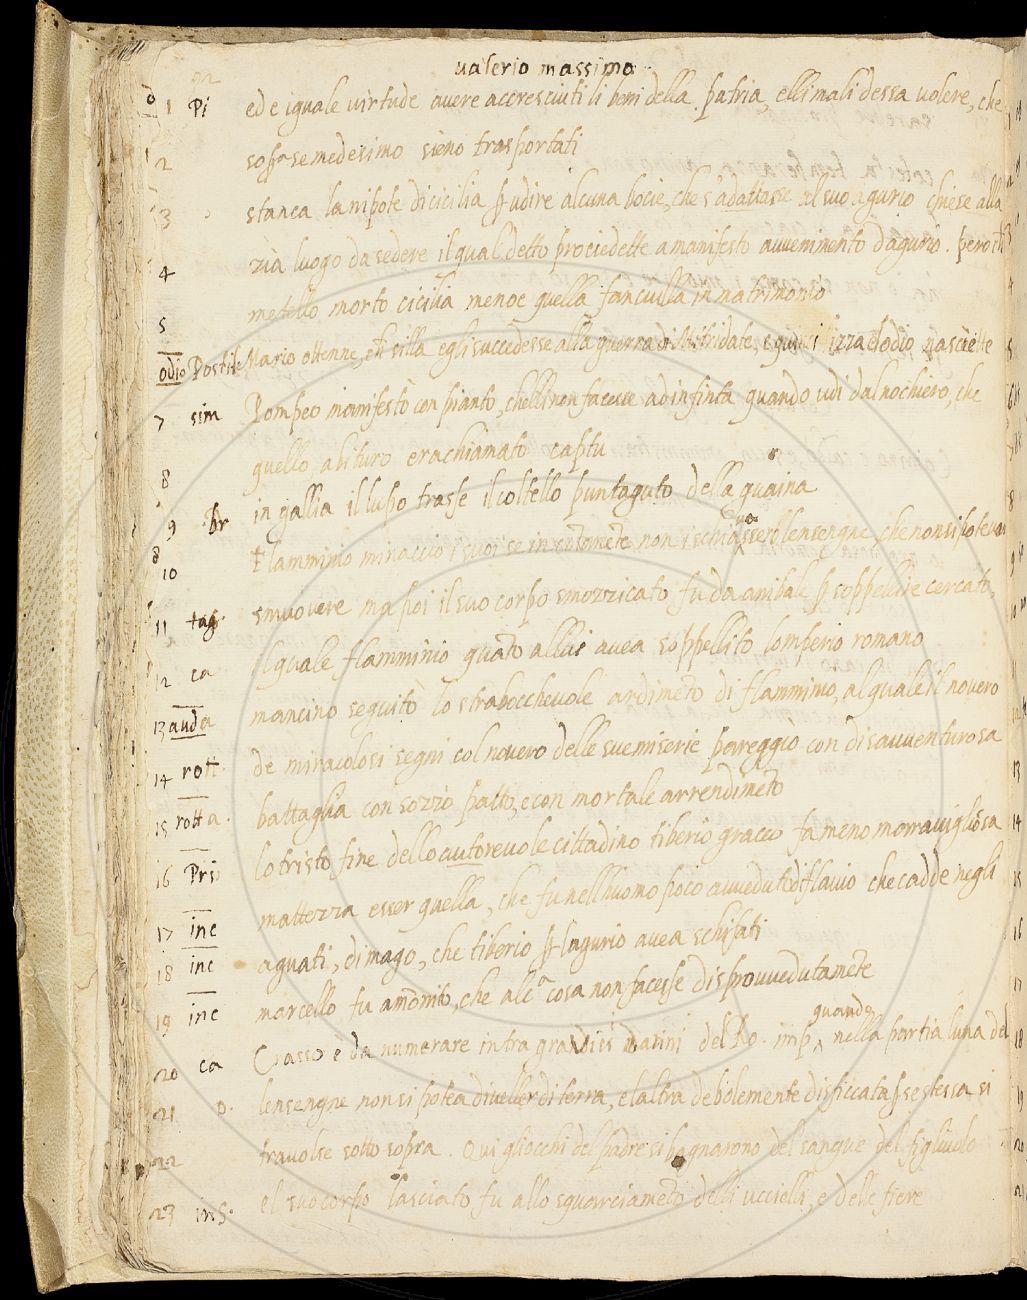 valerio massimo
1 Pi ed e iguale virtude avere accresciuti li beni della patria, elli mali dessa volere, che
2 sopra se medesimo sieno trasportati
3 stanca la nipote di cicilia p udire alcuna bocie, che s adattasse al suo agurio chiese alla
zia luogo da sedere il qual detto prociedette a manifesto avvenimento dagurio. pero ch
4 metello morto cicilia menoe quella fanculla in matrimonio
5
odio Postil Mario ottenne, et silla egli succedesse alla guerra di Mitridate, e quinci izza e odio nasciette
7 sim Pompeo manifestò con pianto, chelli non facesse ad infinta quando udi dal nochiero, che
quello abituro era chiamato captu
8 in gallia il lupo trasse il coltello puntaguto della guaina
9 Br flamminio minaccio i suoi se
10 smuovere ma poi il suo corpo smozzicato fu da anibale p soppellire cercato,
11 tag. il quale flamminio quato allui avea soppellito lomperio romano
12 ca mancino seguitò lo strabocchevole ardimeto di flamminio, al quale il novero
13 auda de miracolosi segni col novero delle sue miserie pareggiò con disavventurosa
14 rott battaglia con sozzo patto, e con mortale arrendimeto
15 rotta. lo tristo fine dello autorevole cittadino tiberio gracco fa meno marravigliosa
16 Pri mattezza esser quella, che fu nellhuomo poco avveduto di flavio che cadde negli
17 inc aguati, di mago, che tiberio p lagurio avea schifati
18 inc marcello fu amonito, che alca cosa non facesse disprovvedutamete
19 inc Crasso è da numerare intra grandissi danni del Ro. imp, quando nella partia luna del
20 ca lensengne non si potea diveller di terra, e laltra debolemente disficcata p se stessa si
21 p. travolse sotto sopra. Qui gliocchi del padre si bagnarono del sangue del figliuolo
22 el suo corpo lasciato fu allo squarciameto delli uccielli, e delle fiere
23 ins.